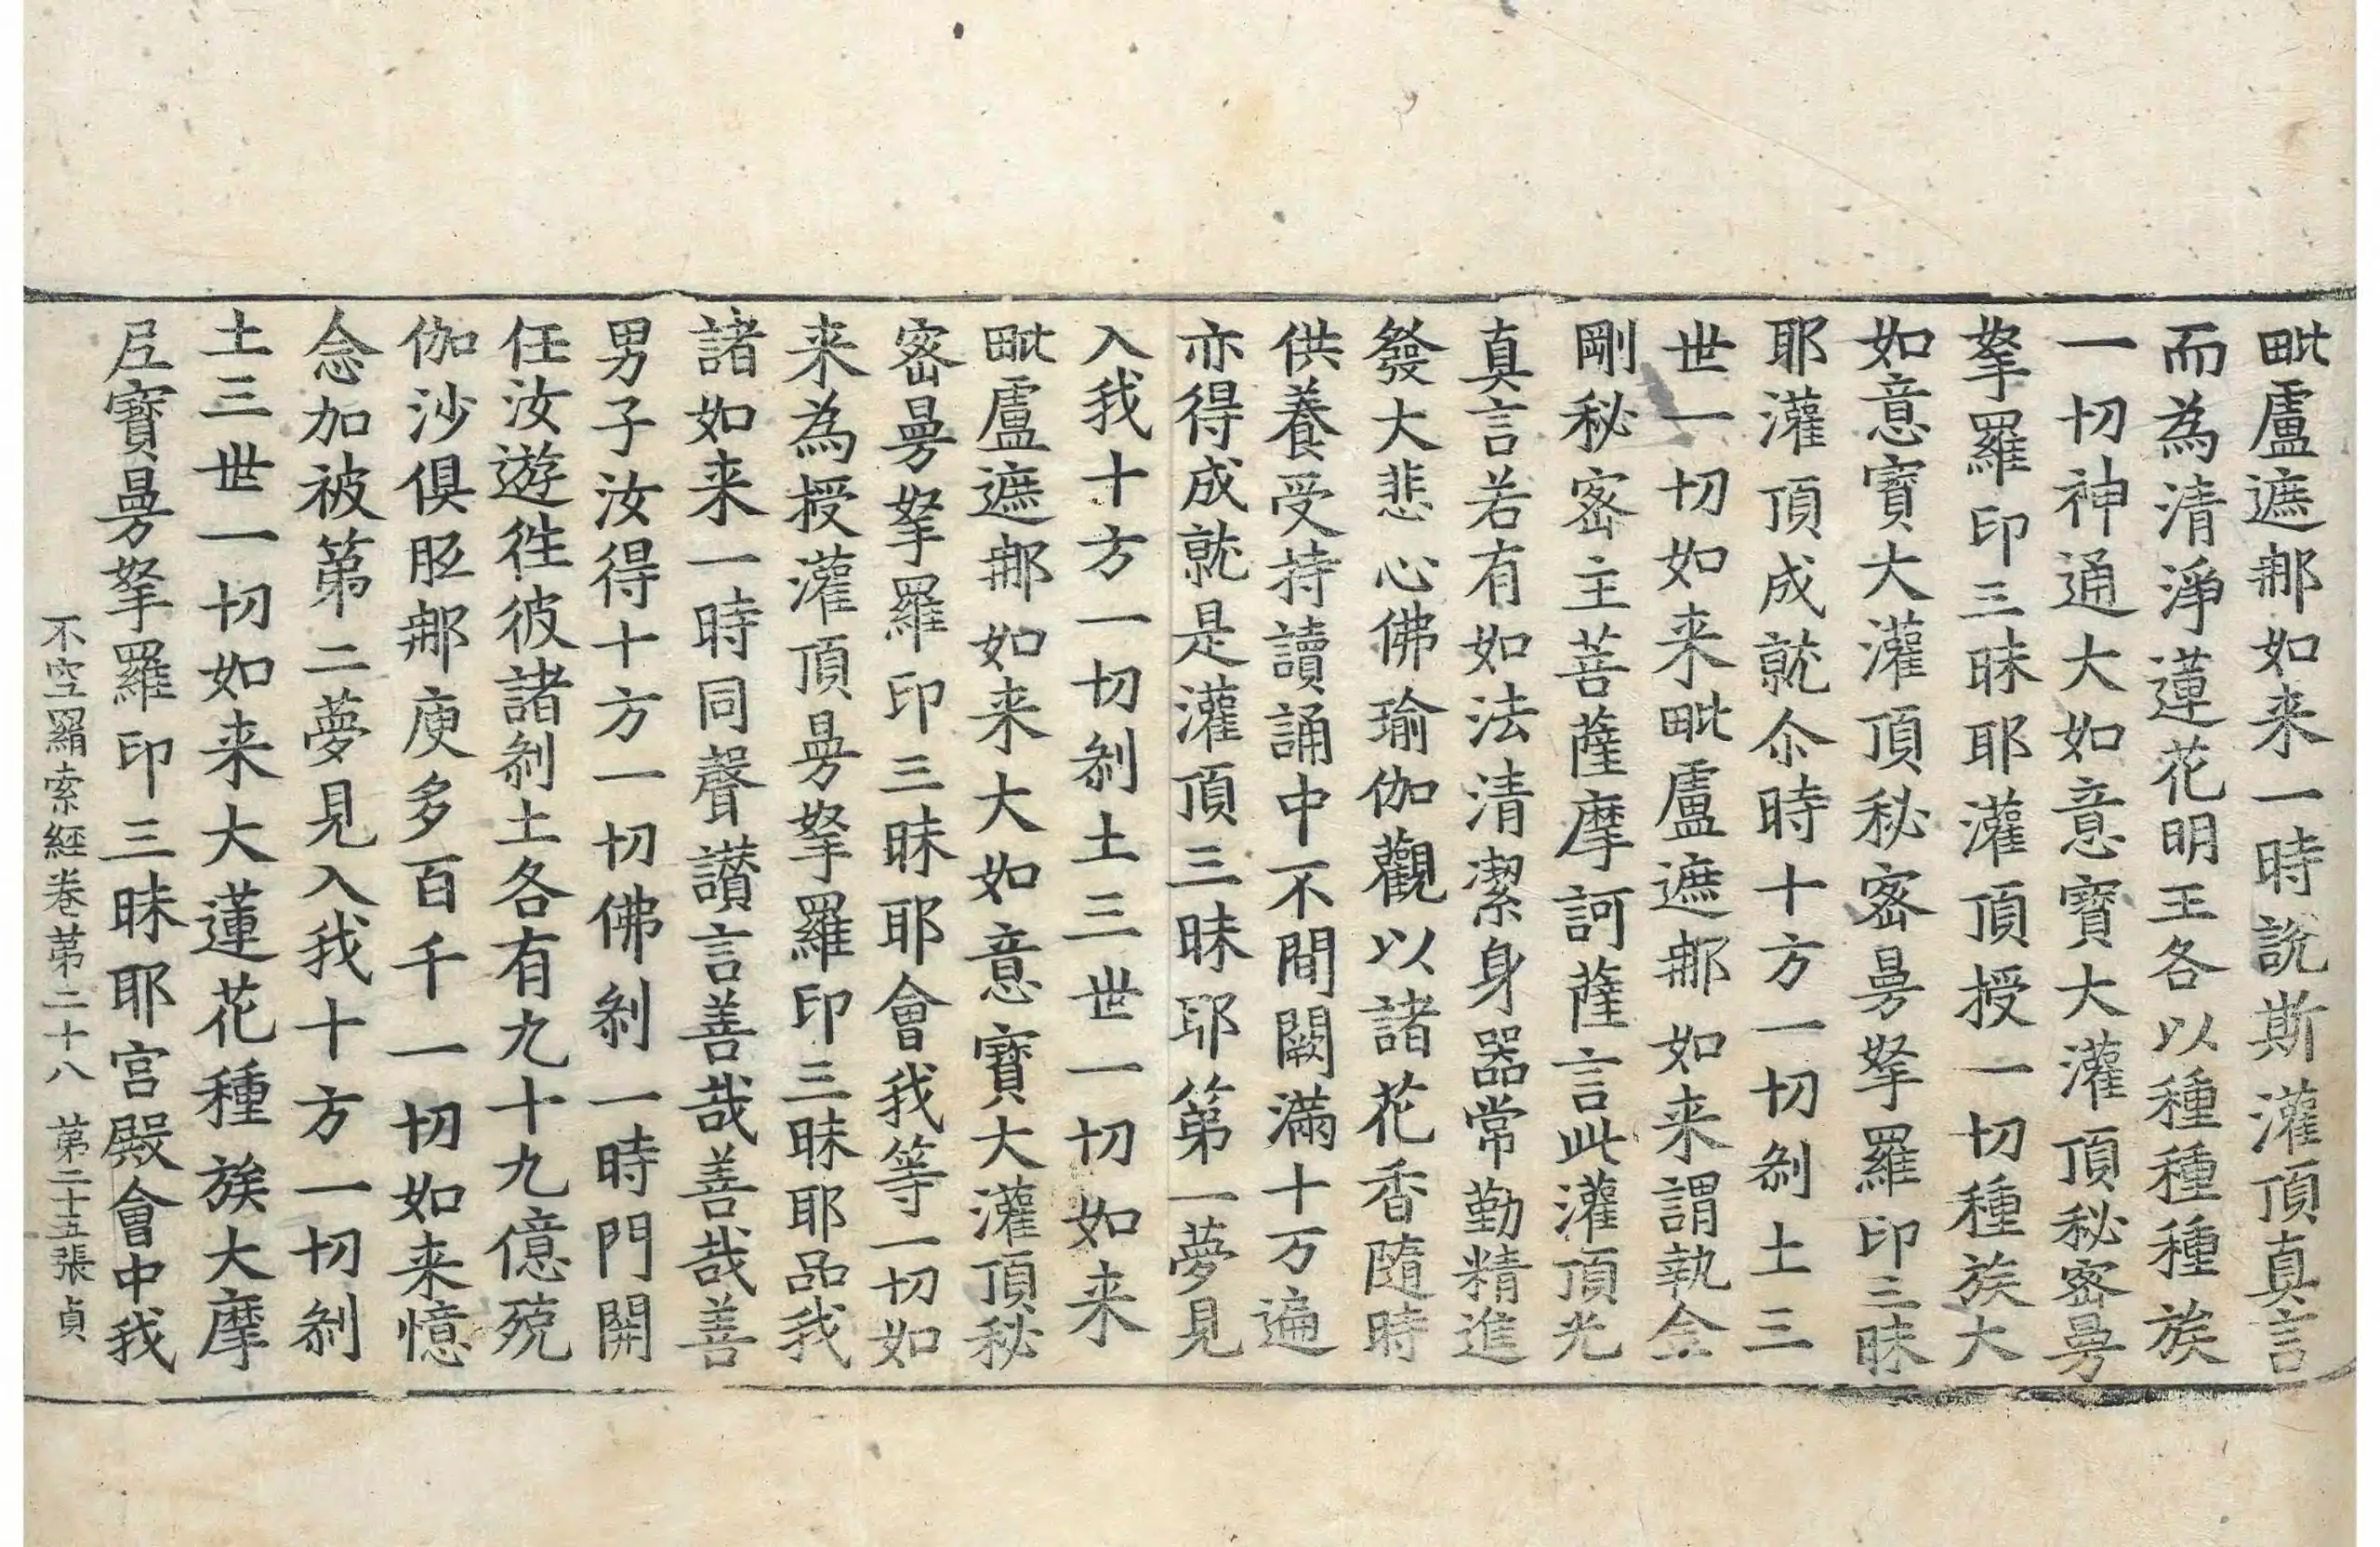 毗盧遮䣌如来一時說斯灌頂真言
而為清淨蓮花明王各以種種種族
一切神通大如意寶大灌頂秘密曼
拏羅印三昧耶灌頂授一切種族大
如意寶大灌頂秘密曼拏羅印三昧
耶灌頂成就尒時十方一切刹土三
世一切如来毗盧遮䣌如来謂執金
剛秘密主菩薩摩訶薩言此灌頂光
真言若有如法清潔身器常勤精進
發大悲心佛瑜伽觀以諸花香隨時
供養受持讀誦中不間闕滿十万遍
亦得成就是灌頂三昧耶第一夢見
入我十方一切刹土三世一切如来
毗盧遮䣌如来大如意寶大灌頂秘
密曼拏羅印三昧耶會我等一切如
来為授灌頂曼拏羅印三昧耶品我
諸如来一時同聲讃言善哉善哉善
男子汝得十方一切佛刹一時門開
任汝遊往彼諸刹土各有九十九億殑
伽沙俱胝䣌庾多百千一切如来憶
念加被第二夢見入我十方一切刹
土三世一切如来大蓮花種族大摩
尼寶曼拏羅印三昧耶宫殿會中我
不空羂索經卷第二十八 第二十五張 貞